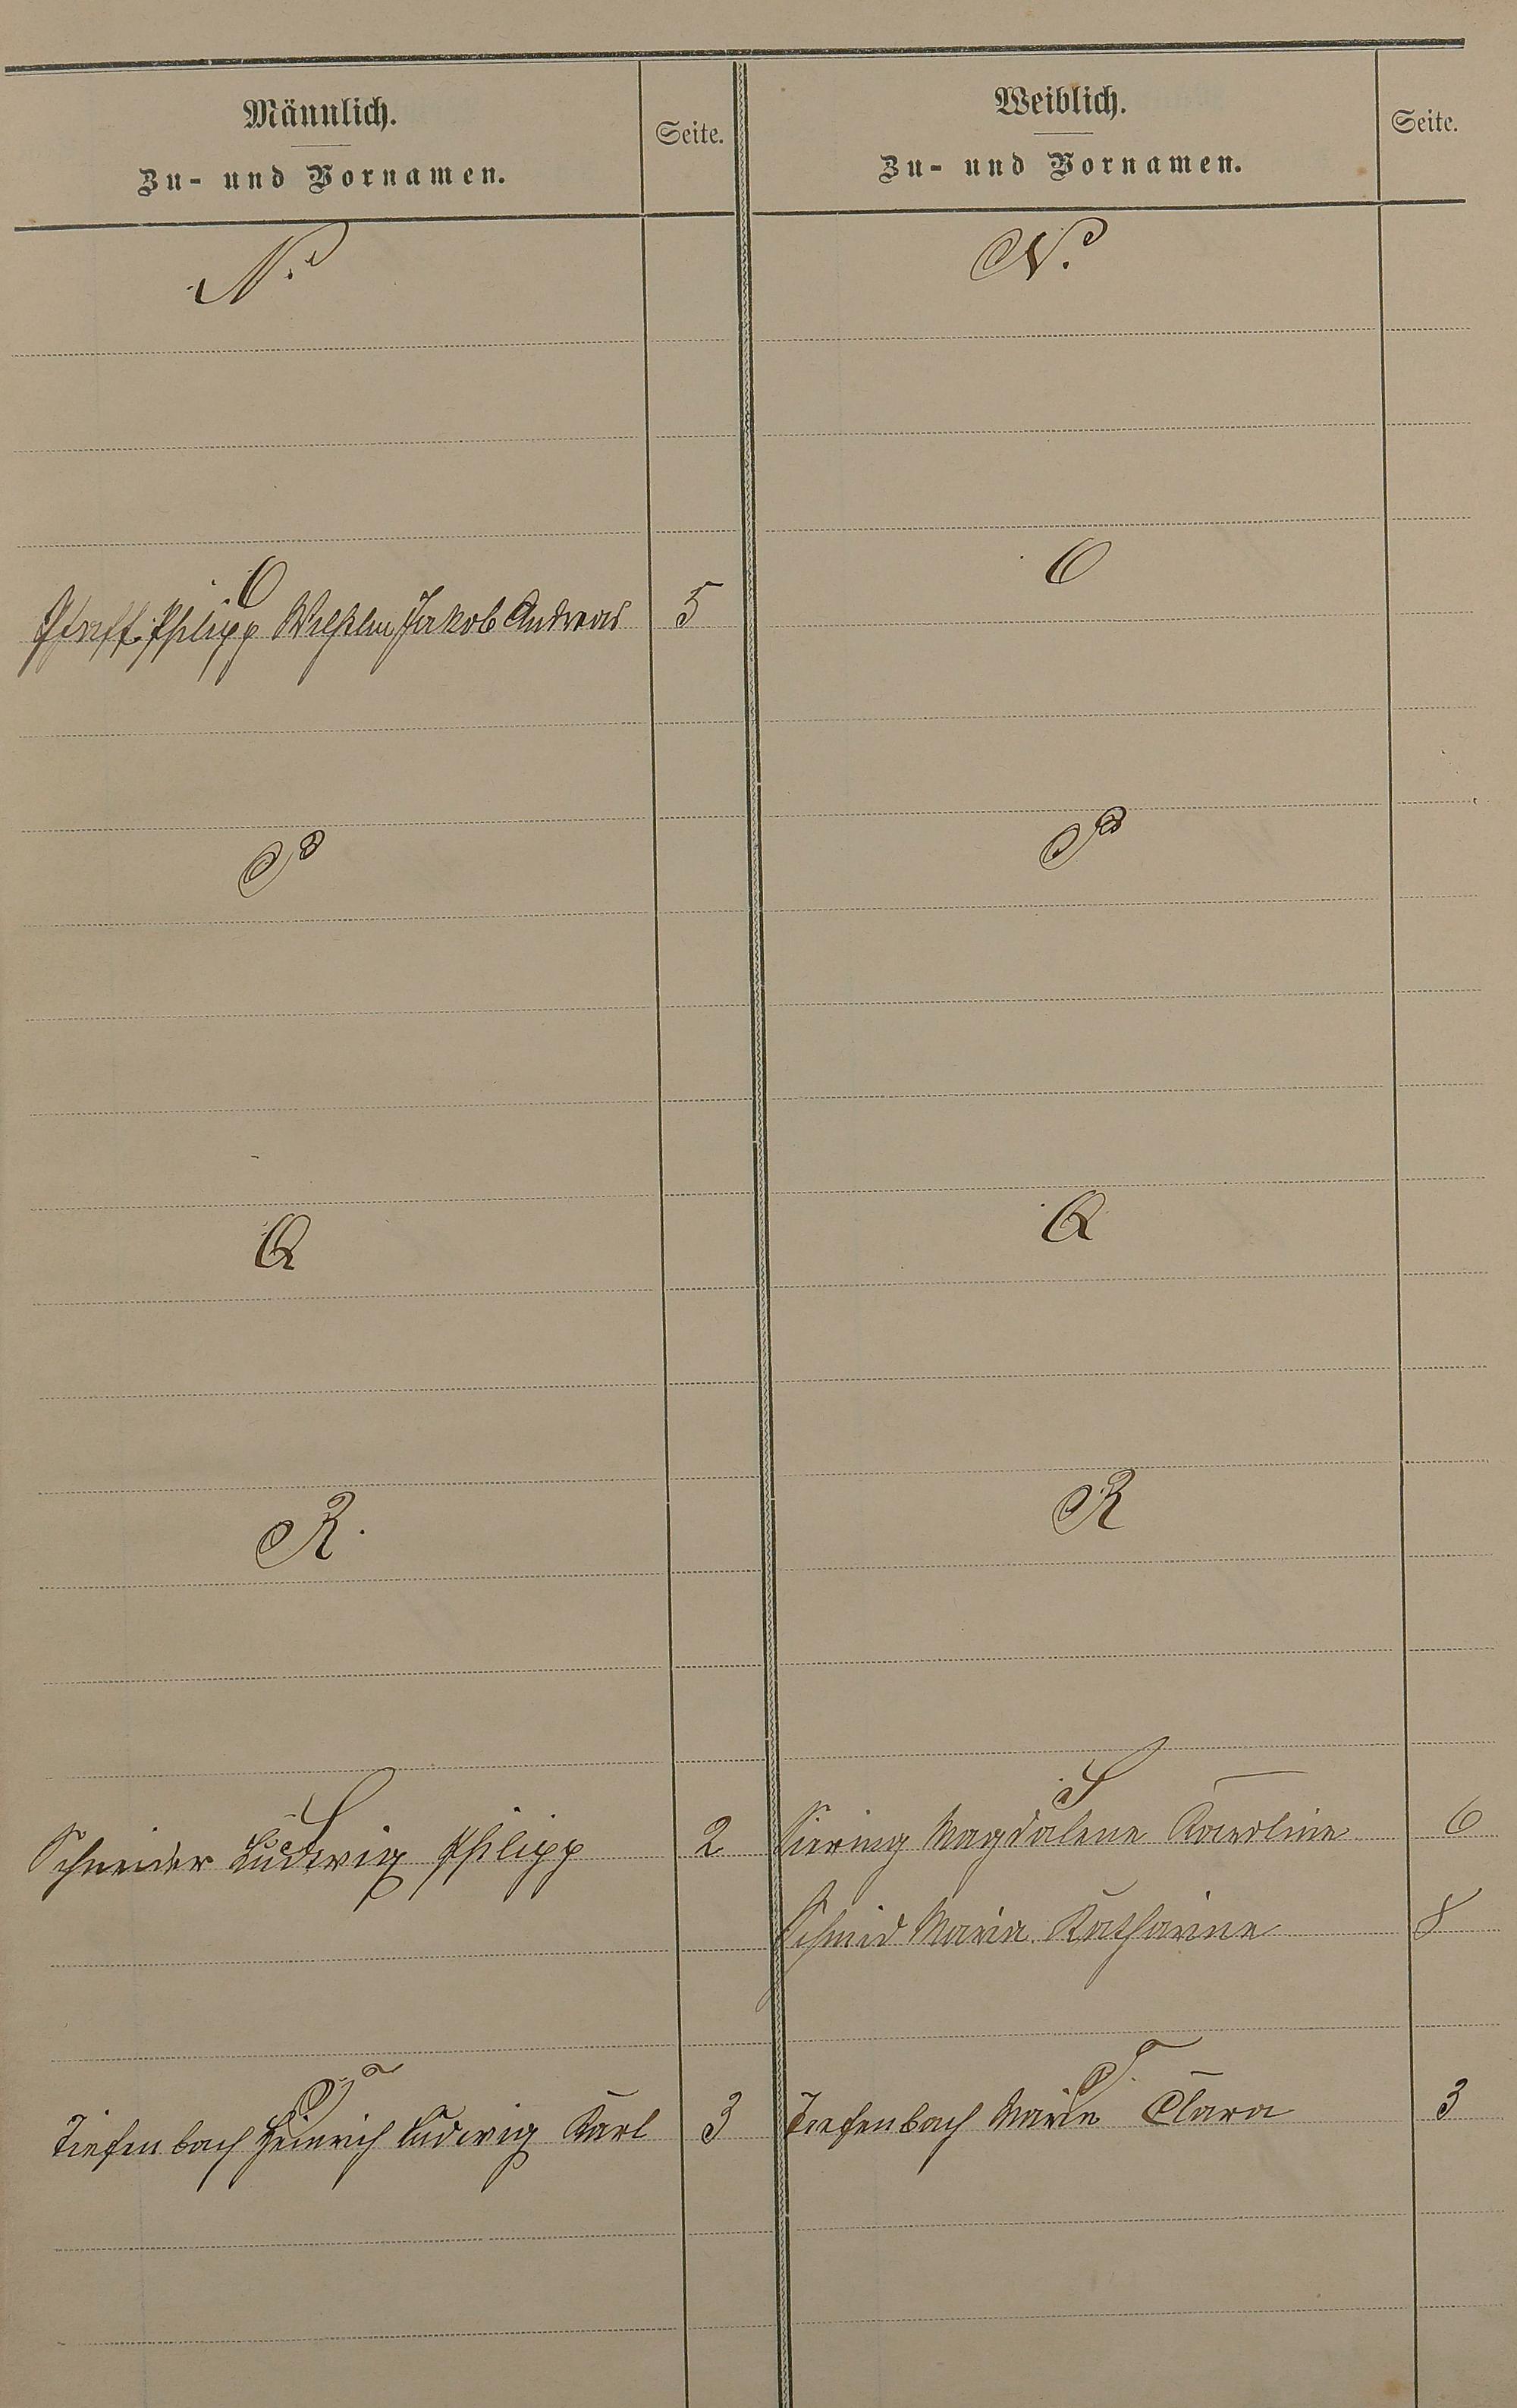 Männlich.
Zu- und Vornamen.
Seite.
Weiblich.
Zu- und Vornamen.
Seite.
N.
N.
O
O
Philipp Wilhelm Jakob Andreas 5
P
P
Q
Q
R.
R
S
S
Schneider Ludwig Philipp 2
Siering Magdalene Karoline 6
Schmid Maria Katharine 8
T
T.
Tiefenbach Heinrich Ludwig Karl 3
Tiefenbach Marie Clara 3